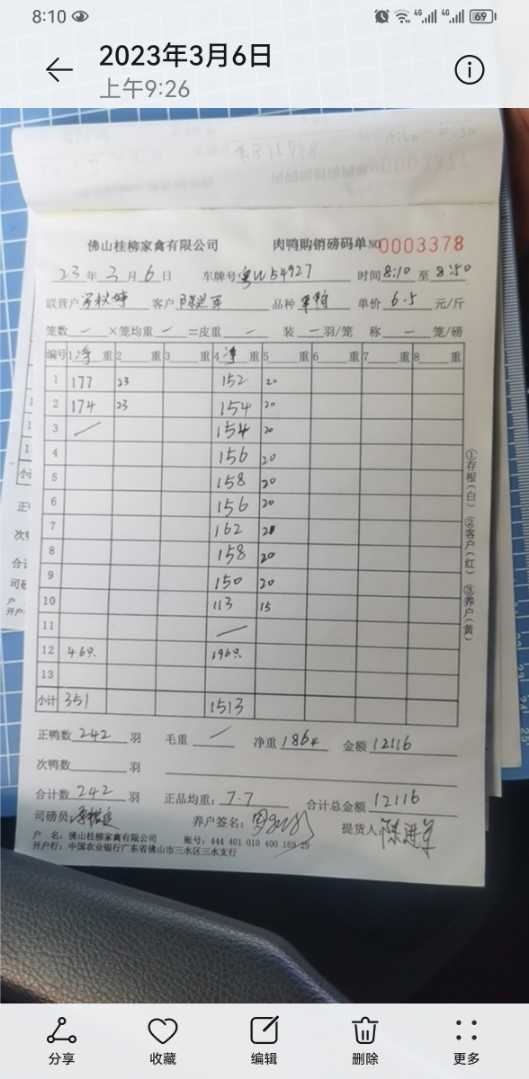 8:10
4G 4G 69
2023年3月6日
上午9:26
佛山桂柳家禽有限公司 肉鸭购销磅码单 NO 0003378
23年3月6日 车牌号粤W54927 时间8:10至8:50
联营户 客户陈进军 品种 单价6.5元/斤
笼数一×笼均重一=皮重一 装一羽/笼 称一笼/磅
编号 1净重 2重 3重 4净重 5重 6重 7重 8重
1 177 23 152 20
2 174 23 154 20
3 154 20
4 156 20
5 158 20
6 156 20
7 162 20
8 158 20
9 150 20
10 113 15
11
12 46只 196只
13
小计 351 1513
正鸭数242羽 毛重 净重1864 金额12116
次鸭数 羽
合计数242羽 正品均重:7.7 合计总金额12116
司磅员: 养户签名: 提货人:陈进军
户 名:佛山桂柳家禽有限公司 账号:444 401 010 400 169 25
开户行:中国农业银行广东省佛山市三水区三水支行
①存根(白) ②客户(红) ③养户(黄)
分享 收藏 编辑 删除 更多